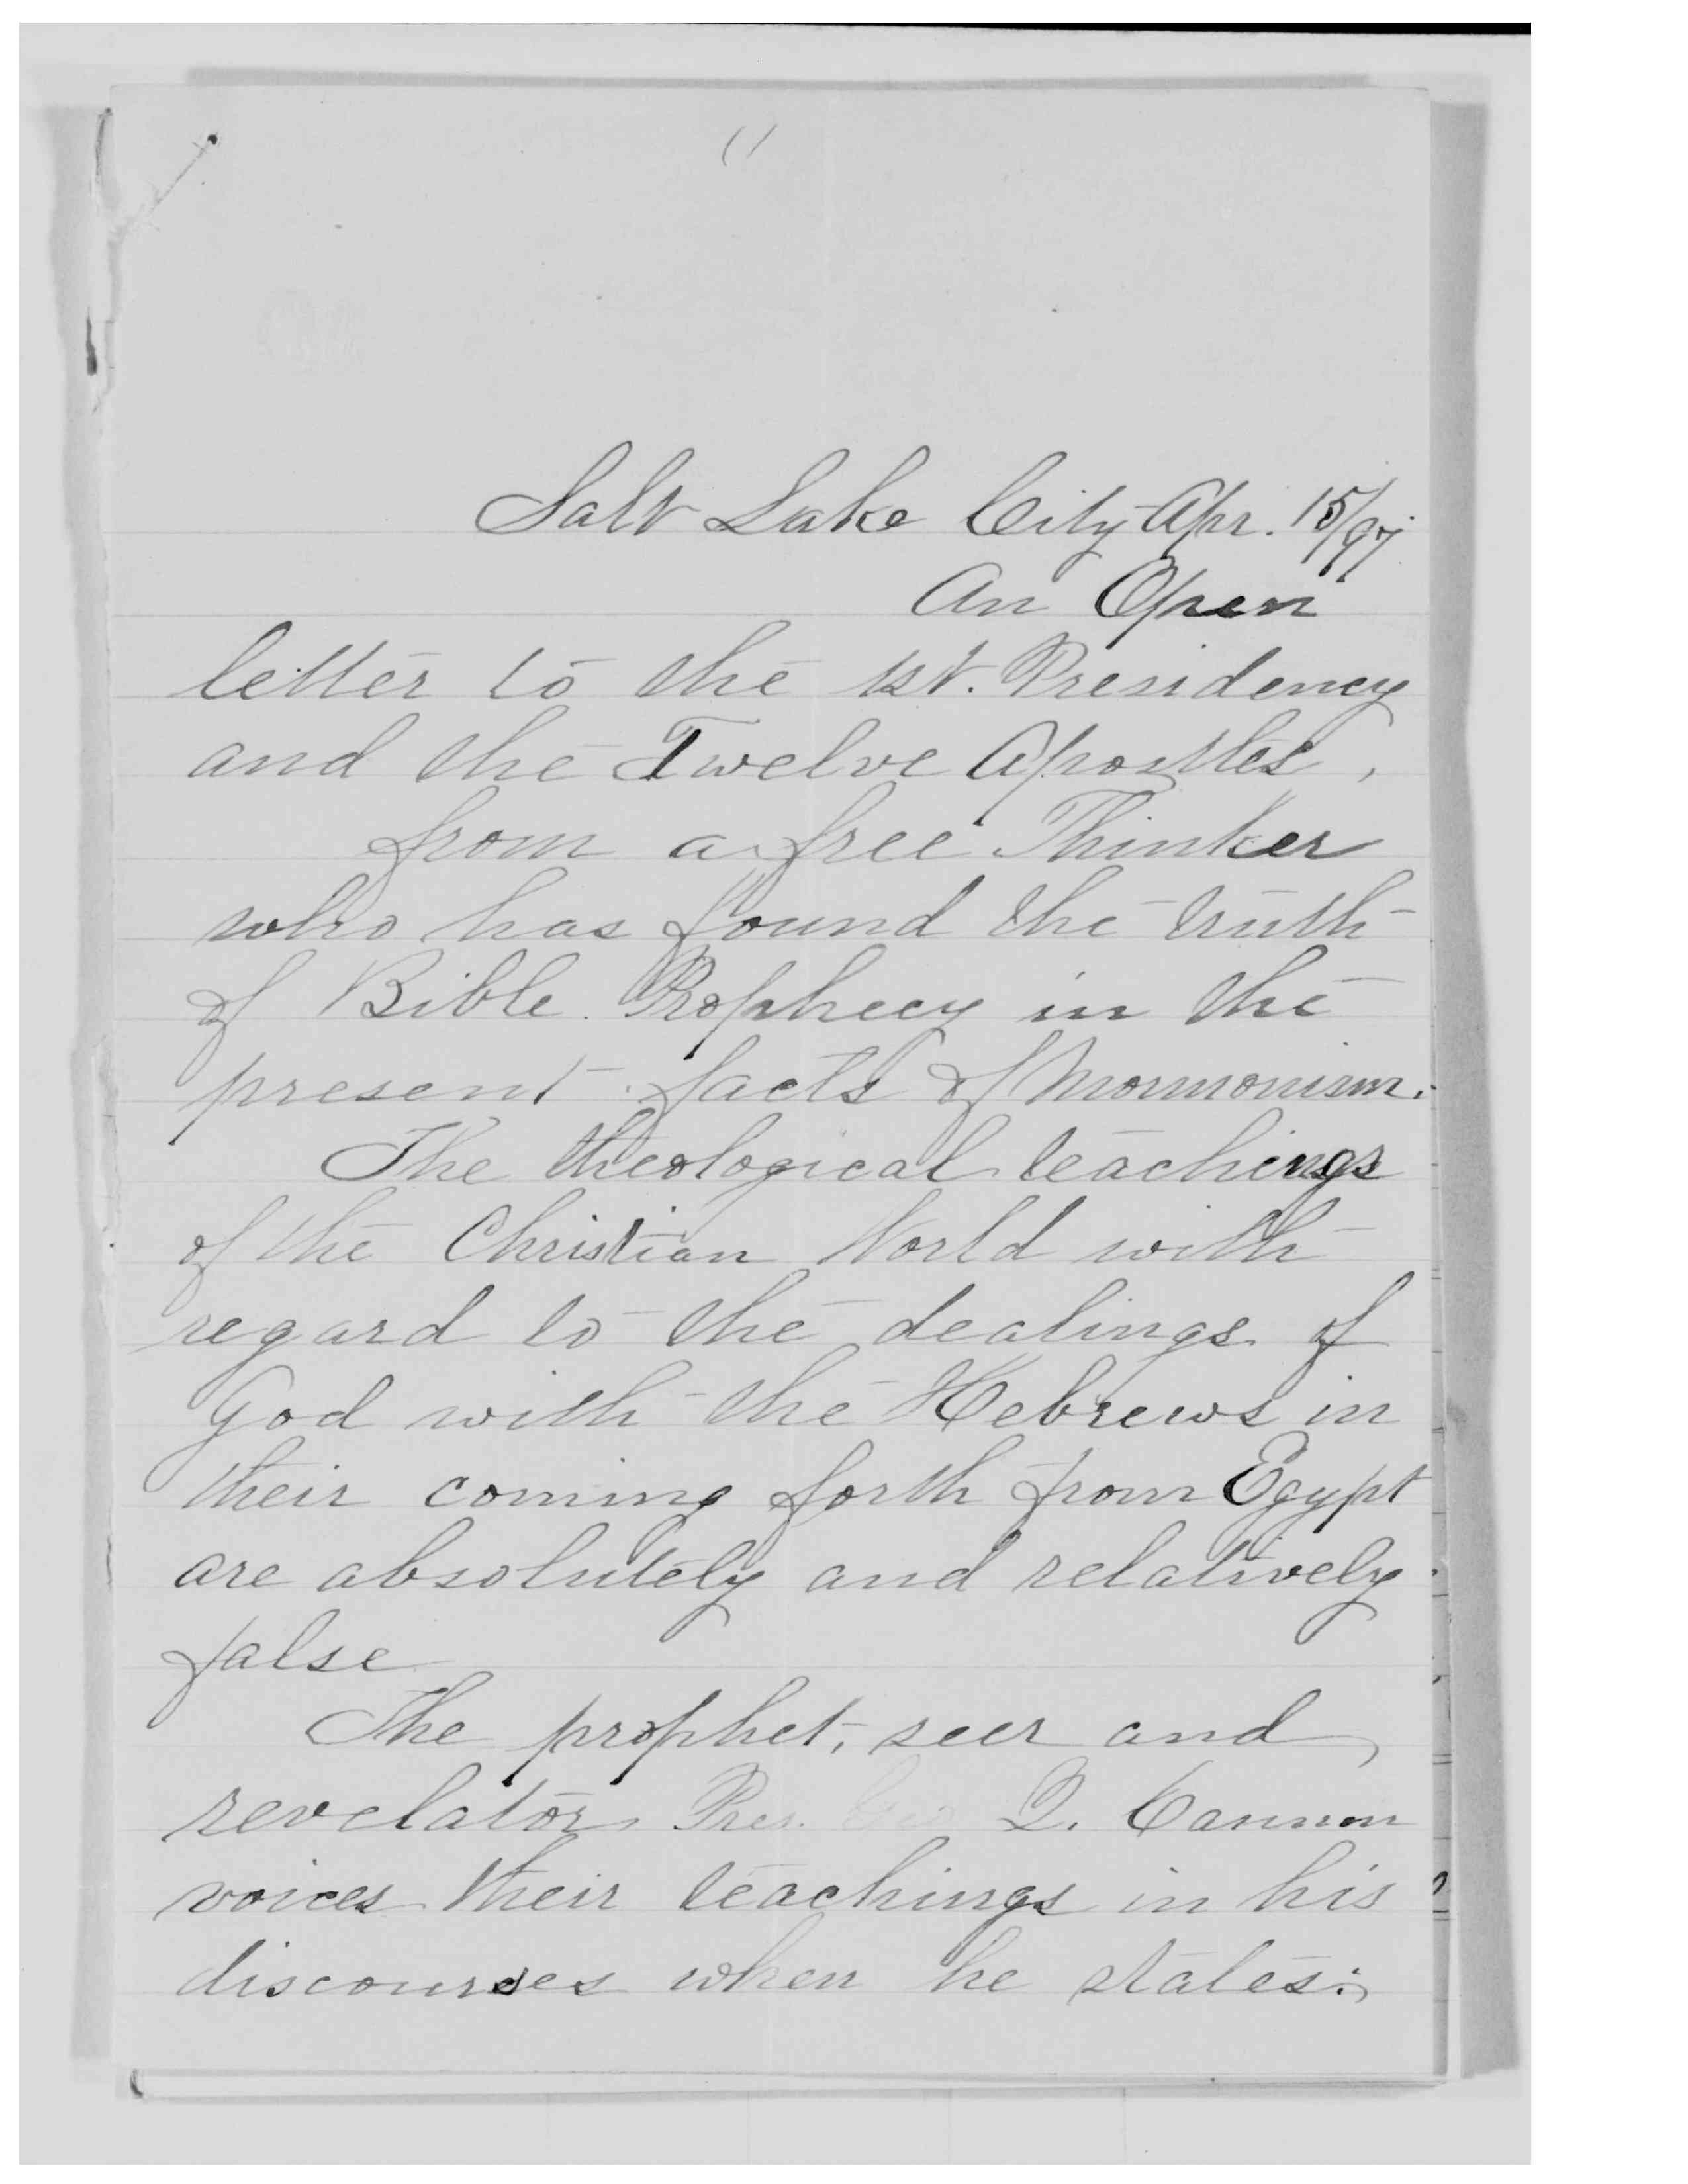 Salt Lake City Apr. 15/97.
An Open
letter to the 1st. Presidency
and the Twelve Apostles,
from a free Thinker
who has found the truth
of Bible Prophecy in the
present facts of Mormonism.
The theological teachings
of the Christian World with
regard to the dealings of
God with the Hebrews in
their coming forth from Egypt
are absolutely and relatively
false
The prophet, seer and
revelator, Pres. Geo Q. Cannon
voices their teachings in his
discourses when he states: